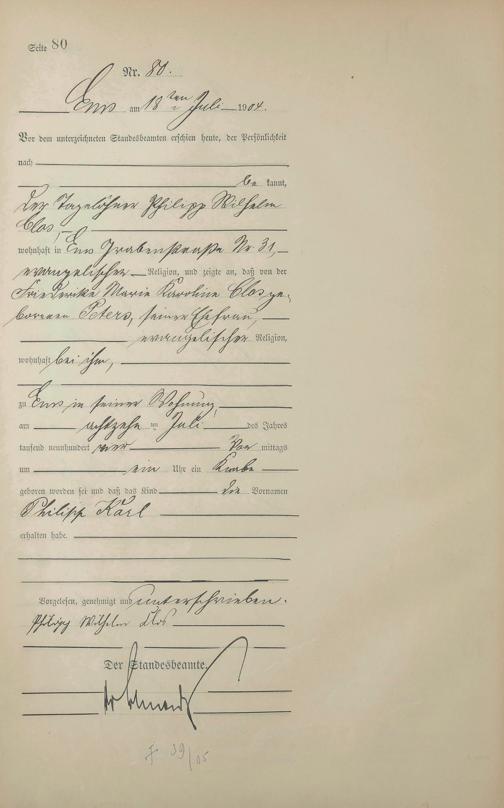 Seite 80
Nr. 80.
Ems am 18ten Juli 1904.
Vor dem unterzeichneten Standesbeamten erschien heute, der Persönlichkeit
nach
be kannt,
der Tagelöhner Philipp Wilhelm
Clos,
wohnhaft in Ems Grabenstraße Nr 31,
evangelischer Religion, und zeigte an, daß von der
Friederike Marie Karoline Clos ge-
borenen Peters, seiner Ehefrau,
evangelischer Religion,
wohnhaft bei ihm,
zu Ems in seiner Wohnung,
am achtzehn ten Juli des Jahres
tausend neunhundert vier Vor mittags
um ein Uhr ein Knabe
geboren worden sei und daß das Kind die Vornamen
Philipp Karl
erhalten habe.
Vorgelesen, genehmigt und unterschrieben.
Philipp Wilhelm Clos
Der Standesbeamte.
39/05